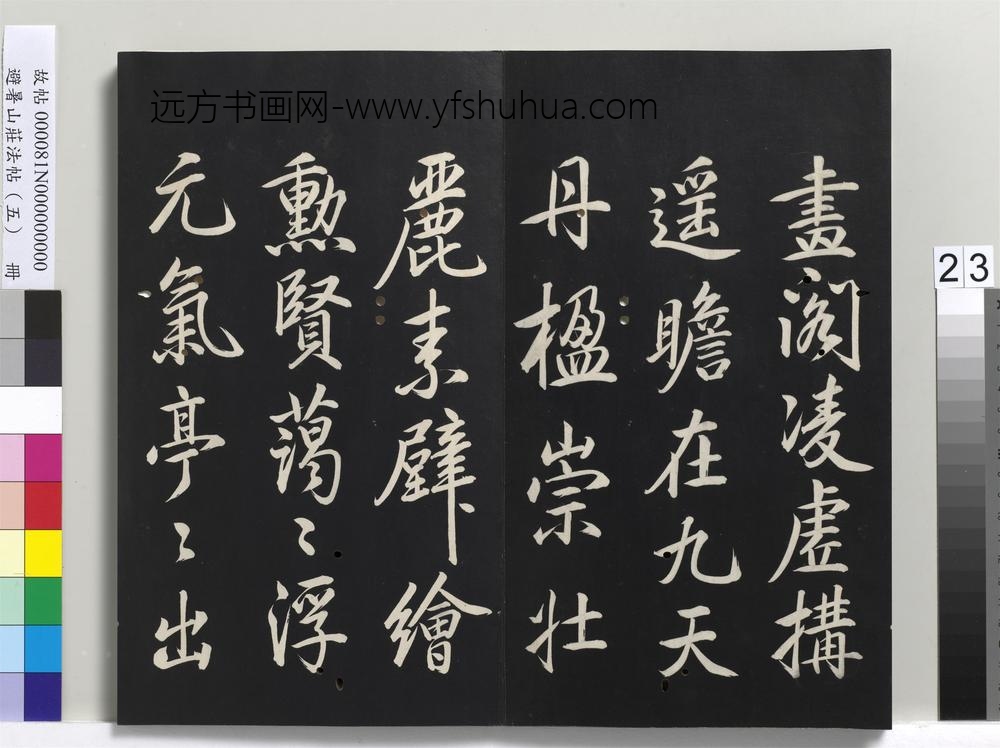 远方书画网-www.yfshuhua.com
畫閣凌虛構
遥瞻在九天
丹楹崇壯
麗素壁繪
勲賢藹〻浮
元氣亭〻出
故帖 000081N000000000
避暑山莊法帖(五) 冊
23